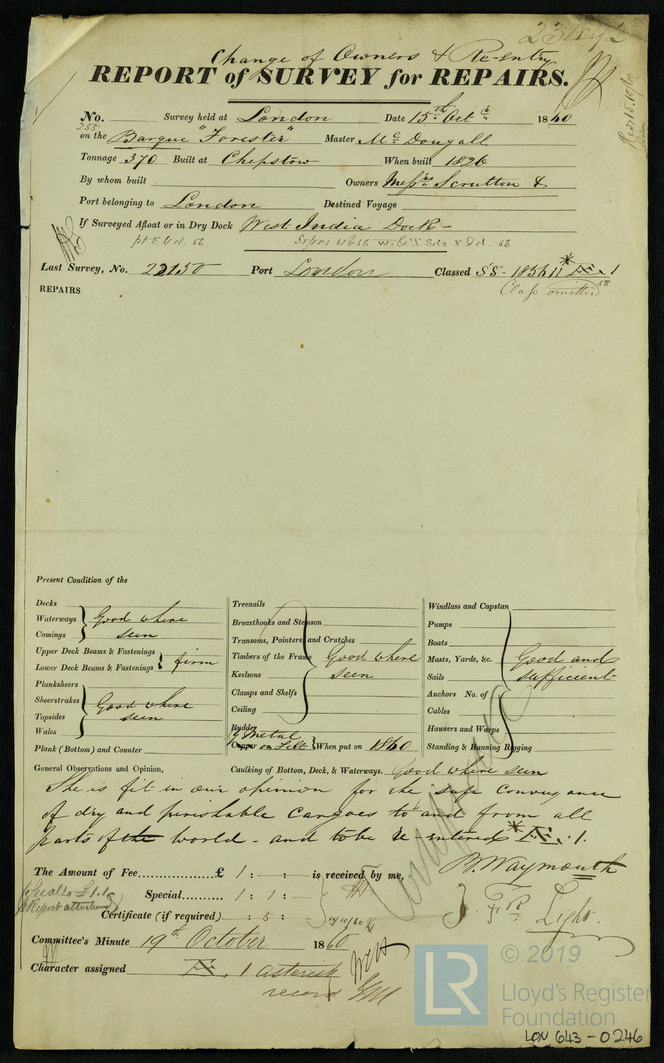 Change of Owners & Re-entry
REPORT of SURVEY for REPAIRS.
No. Survey held at London Date 15th Octr 1860
255
on the Barque "Forester" Master Mc Dougall
Tonnage 370 Built at Chepstow When built 1826
By whom built Owners Messrs Scrutton &
Port belonging to London Destined Voyage
If Surveyed Afloat or in Dry Dock West India Dock -
Last Survey, No. 22150 Port London Classed SS- 1856 11 * Æ. 1
Class omitted 58
REPAIRS
Present Condition of the
Decks
Waterways
Comings
Good where
seen
Upper Deck Beams & Fastenings
Lower Deck Beams & Fastenings
firm
Planksheers
Sheerstrakes
Topsides
Wales
Good where
seen
Plank (Bottom) and Counter
Treenails
Breasthooks and Stemson
Transoms, Pointers, and Crutches
Timbers of the Frame
Keelsons
Clamps and Shelfs
Ceiling
Rudder
Good where
seen
Y Metal
Copper on Felt When put on 1860
Windlass and Capstan
Pumps
Boats
Masts, Yards, &c.
Sails
Anchors No. of
Cables
Hawsers and Warps
Standing & Running Rigging
Good and
sufficient
General Observations and Opinion, Caulking of Bottom, Deck, & Waterways. Good where seen
She is fit in our opinion for the safe conveyance
of dry and perishable cargoes to and from all
parts of the world - and to be re-entered * Æ. 1.
The Amount of Fee £ 1 : - : is received by me,
B. Waymouth
See also £1.1
Report attached
Special 1 : 1 :
Certificate (if required) : 5 :
J. Fr Light.
Committee's Minute 19th October 1860
Character assigned Æ. 1 asterisk
record
© 2019
LR
Lloyd's Register
Foundation
LON 643-0246